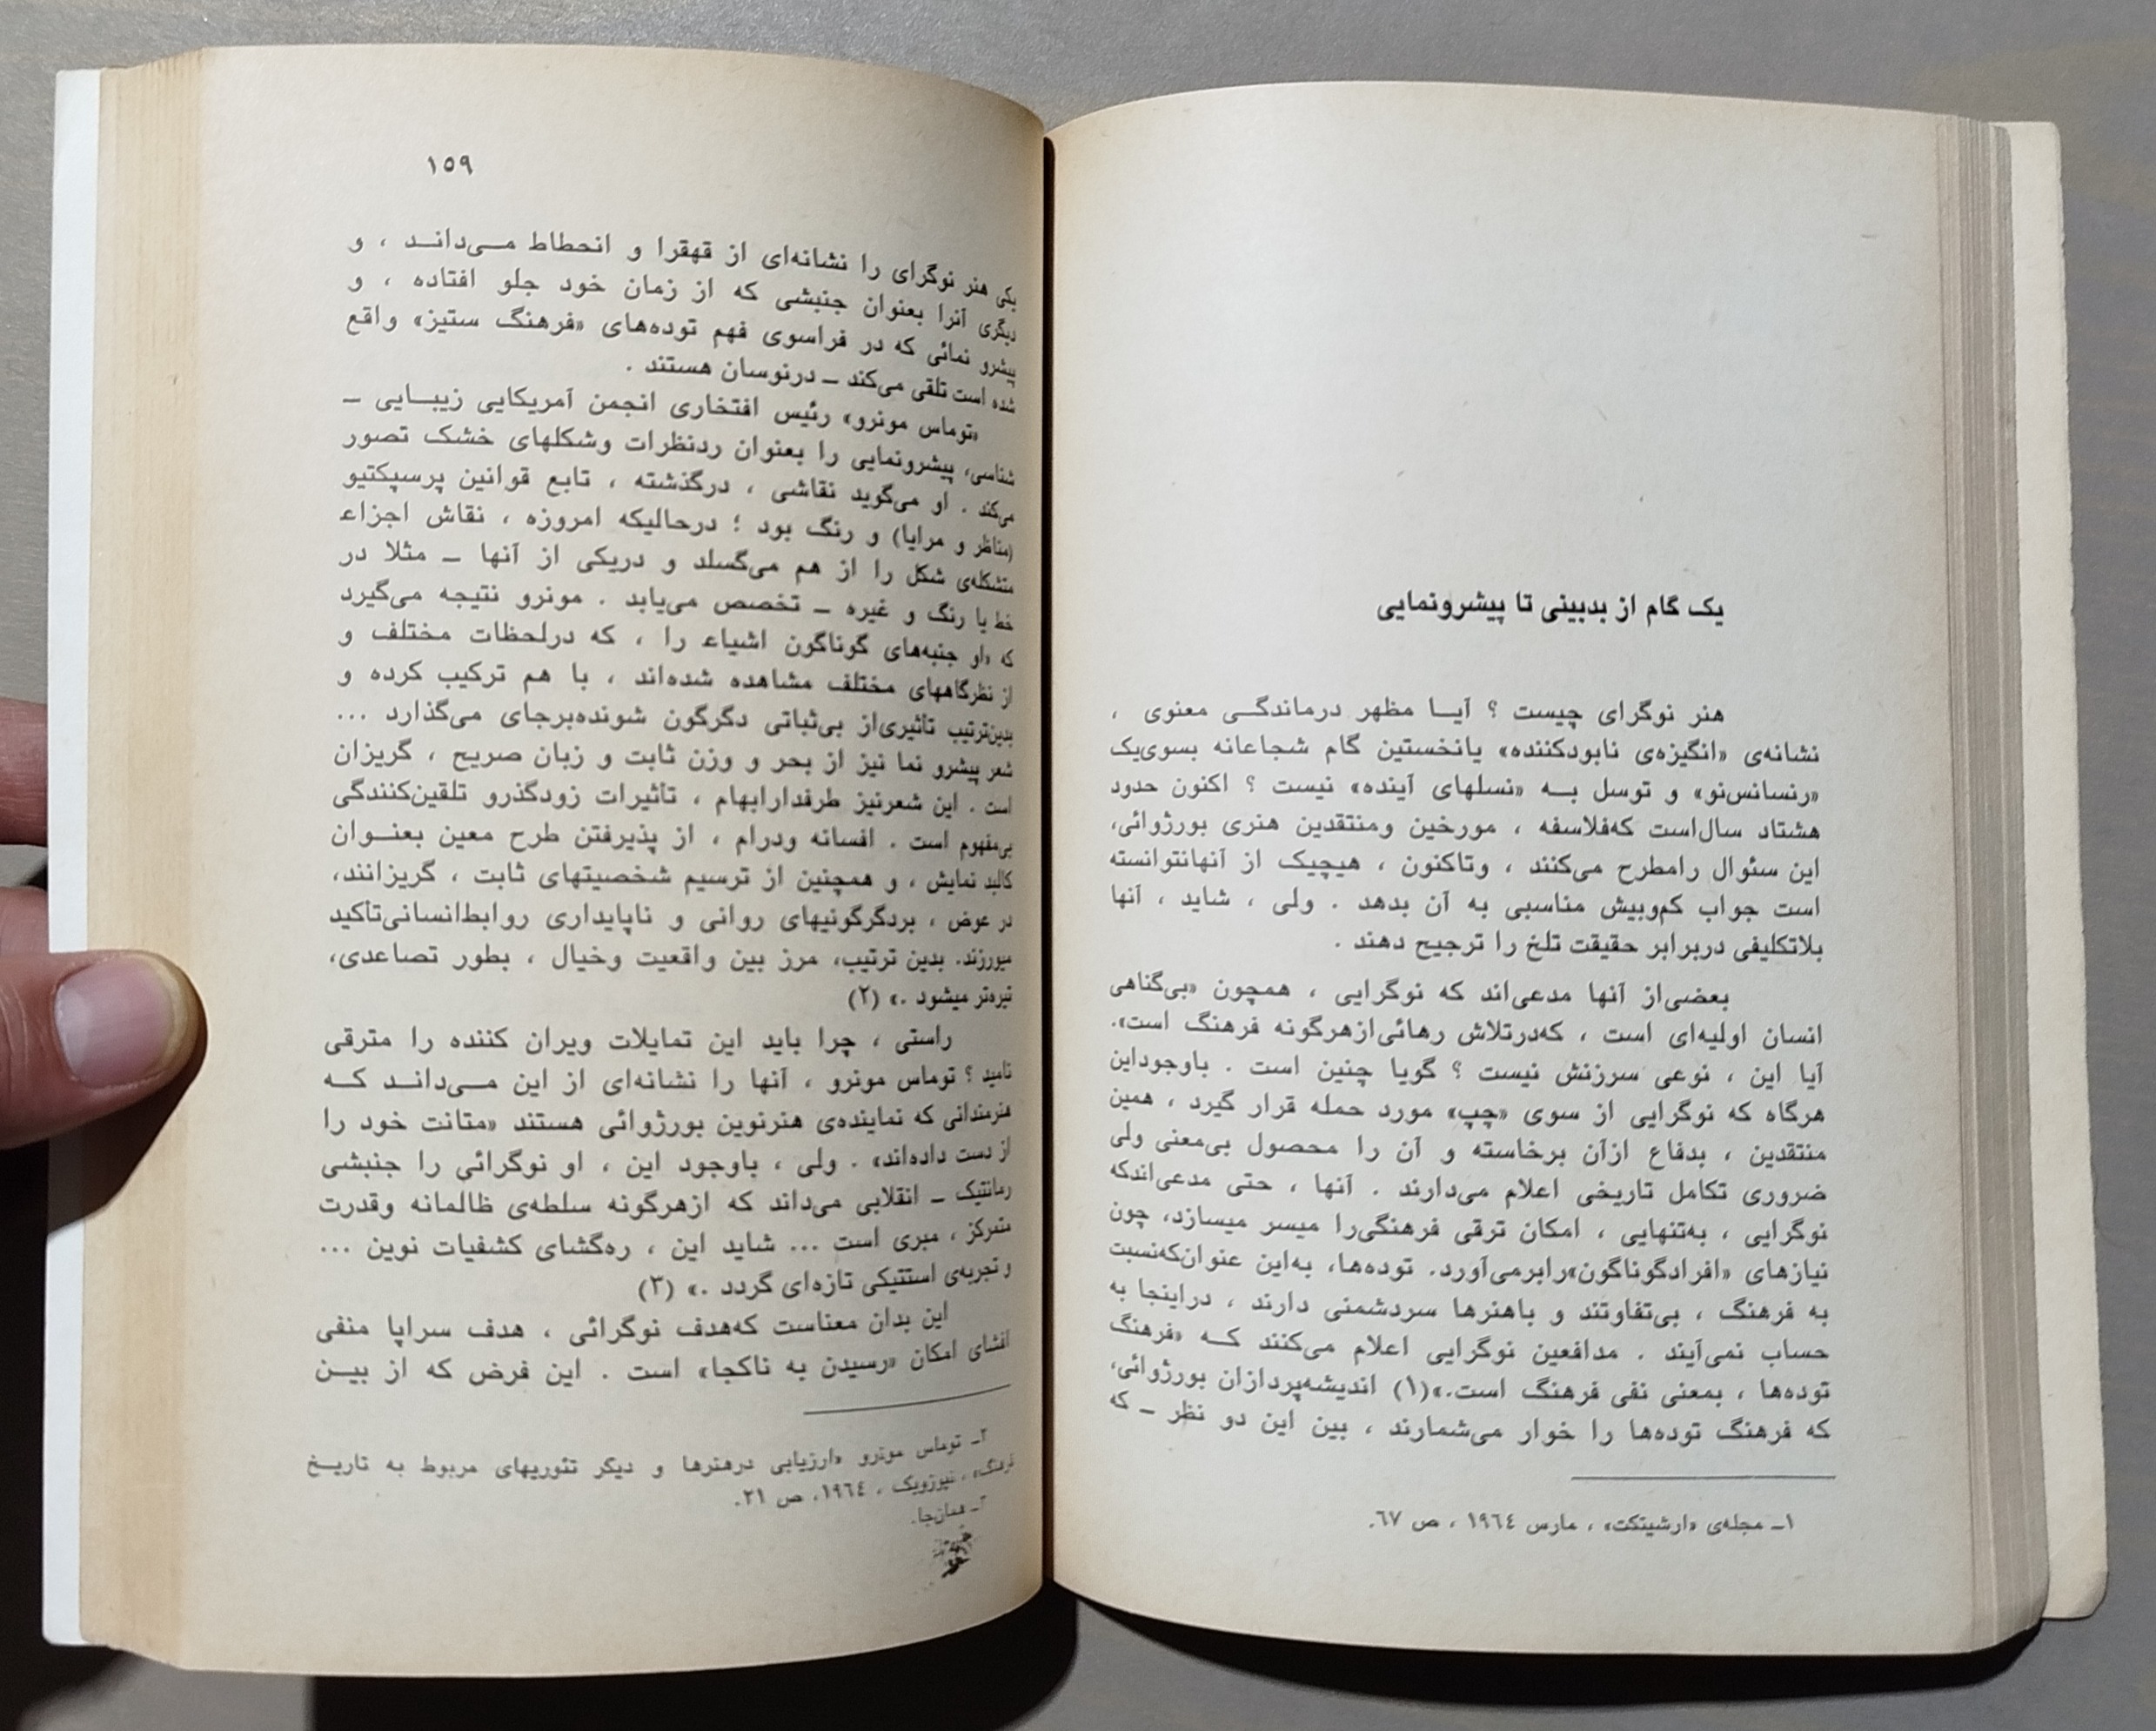 یک گام از بدبینی تا پیشرونمایی
هنر نوگرای چیست ؟ آیـا مظهر درماندگـی معنوی ،
نشانه‌ی «انگیزه‌ی نابودکننده» یانخستین گام شجاعانه بسوی‌یک
«رنسانس‌نو» و توسل بـه «نسلهای آینده» نیست ؟ اکنون حدود
هشتاد سال‌است که‌فلاسفه ، مورخین ومنتقدین هنری بورژوائی،
این سئوال رامطرح می‌کنند ، وتاکنون ، هیچیک از آنهانتوانسته
است جواب کم‌وبیش مناسبی به آن بدهد . ولی ، شاید ، آنها
بلاتکلیفی دربرابر حقیقت تلخ را ترجیح دهند .
بعضی‌از آنها مدعی‌اند که نوگرایی ، همچون «بی‌گناهی
انسان اولیه‌ای است ، که‌درتلاش رهائی‌ازهرگونه فرهنگ است».
آیا این ، نوعی سرزنش نیست ؟ گویا چنین است . باوجوداین
هرگاه که نوگرایی از سوی «چپ» مورد حمله قرار گیرد ، همین
منتقدین ، بدفاع ازآن برخاسته و آن را محصول بی‌معنی ولی
ضروری تکامل تاریخی اعلام می‌دارند . آنها ، حتی مدعی‌اندکه
نوگرایی ، به‌تنهایی ، امکان ترقی فرهنگی‌را میسر میسازد، چون
نیازهای «افرادگوناگون»رابرمی‌آورد. توده‌ها، به‌این عنوان‌که‌نسبت
به فرهنگ ، بی‌تفاوتند و باهنرها سردشمنی دارند ، دراینجا به
حساب نمی‌آیند . مدافعین نوگرایی اعلام می‌کنند کـه «فرهنگ
توده‌ها ، بمعنی نفی فرهنگ است.»(۱) اندیشه‌پردازان بورژوائی،
که فرهنگ توده‌ها را خوار می‌شمارند ، بین این دو نظر ــ که
۱ــ مجله‌ی «ارشیتکت» ، مارس ۱۹٦٤ ، ص ٦۷.
۱۵۹
یکی هنر نوگرای را نشانه‌ای از قهقرا و انحطاط مـی‌دانـد ، و
دیگری آنرا بعنوان جنبشی که از زمان خود جلو افتاده ، و
پیشرو نمائی که در فراسوی فهم توده‌های «فرهنگ ستیز» واقع
شده است تلقی می‌کند ــ درنوسان هستند .
«توماس مونرو» رئیس افتخاری انجمن آمریکایی زیبـایی ــ
شناسی، پیشرونمایی را بعنوان ردنظرات وشکلهای خشک تصور
می‌کند . او می‌گوید نقاشی ، درگذشته ، تابع قوانین پرسپکتیو
(مناظر و مرایا) و رنگ بود ؛ درحالیکه امروزه ، نقاش اجزاء
متشکله‌ی شکل را از هم می‌گسلد و دریکی از آنها ــ مثلا در
خط یا رنگ و غیره ــ تخصص می‌یابد . مونرو نتیجه می‌گیرد
که «او جنبه‌های گوناگون اشیاء را ، که درلحظات مختلف و
از نظرگاههای مختلف مشاهده شده‌اند ، با هم ترکیب کرده و
بدین‌ترتیب تأثیری‌از بی‌ثباتی دگرگون شونده‌برجای می‌گذارد ...
شعر پیشرو نما نیز از بحر و وزن ثابت و زبان صریح ، گریزان
است . این شعرنیز طرفدارابهام ، تأثیرات زودگذرو تلقین‌کنندگی
بی‌مفهوم است . افسانه ودرام ، از پذیرفتن طرح معین بعنـوان
کالبد نمایش ، و همچنین از ترسیم شخصیتهای ثابت ، گریزانند،
در عوض ، بردگرگونیهای روانی و ناپایداری روابط‌انسانی‌تأکید
میورزند. بدین ترتیب، مرز بین واقعیت وخیال ، بطور تصاعدی،
تیره‌تر میشود .» (۲)
راستی ، چرا باید این تمایلات ویران کننده را مترقی
نامید ؟ توماس مونرو ، آنها را نشانه‌ای از این مـی‌دانـد کـه
هنرمندانی که نماینده‌ی هنرنوین بورژوائی هستند «متانت خود را
از دست داده‌اند» . ولی ، باوجود این ، او نوگرائی را جنبشی
رمانتیک ــ انقلابی می‌داند که ازهرگونه سلطه‌ی ظالمانه وقدرت
متمرکز ، مبری است ... شاید این ، ره‌گشای کشفیات نوین ...
و تجربه‌ی استتیکی تازه‌ای گردد .» (۳)
این بدان معناست که‌هدف نوگرائی ، هدف سراپا منفی
افشای امکان «رسیدن به ناکجا» است . این فرض که از بیـن
۲ــ توماس مونرو «ارزیابی درهنرها و دیگر تئوریهای مربوط به تاریـخ
فرهنگ» ، نیوزویک ، ۱۹٦٤، ص ۲۱.
۳ــ همان‌جا.